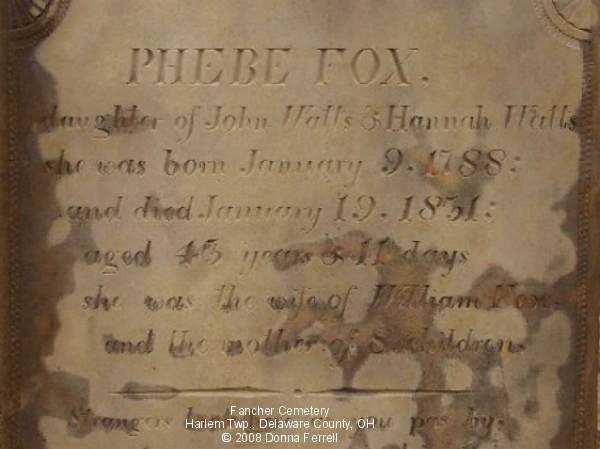 PHEBE FOX.
daughter of John Watts & Hannah Watts
she was born January 9. 1788:
and died January 19. 1831:
aged 43 years & 11 days
she was the wife of William Fox.
and the mother of 8. children.
Strangers you pas by.
Fancher Cemetery
Harlem Twp., Delaware County, OH
© 2008 Donna Ferrell